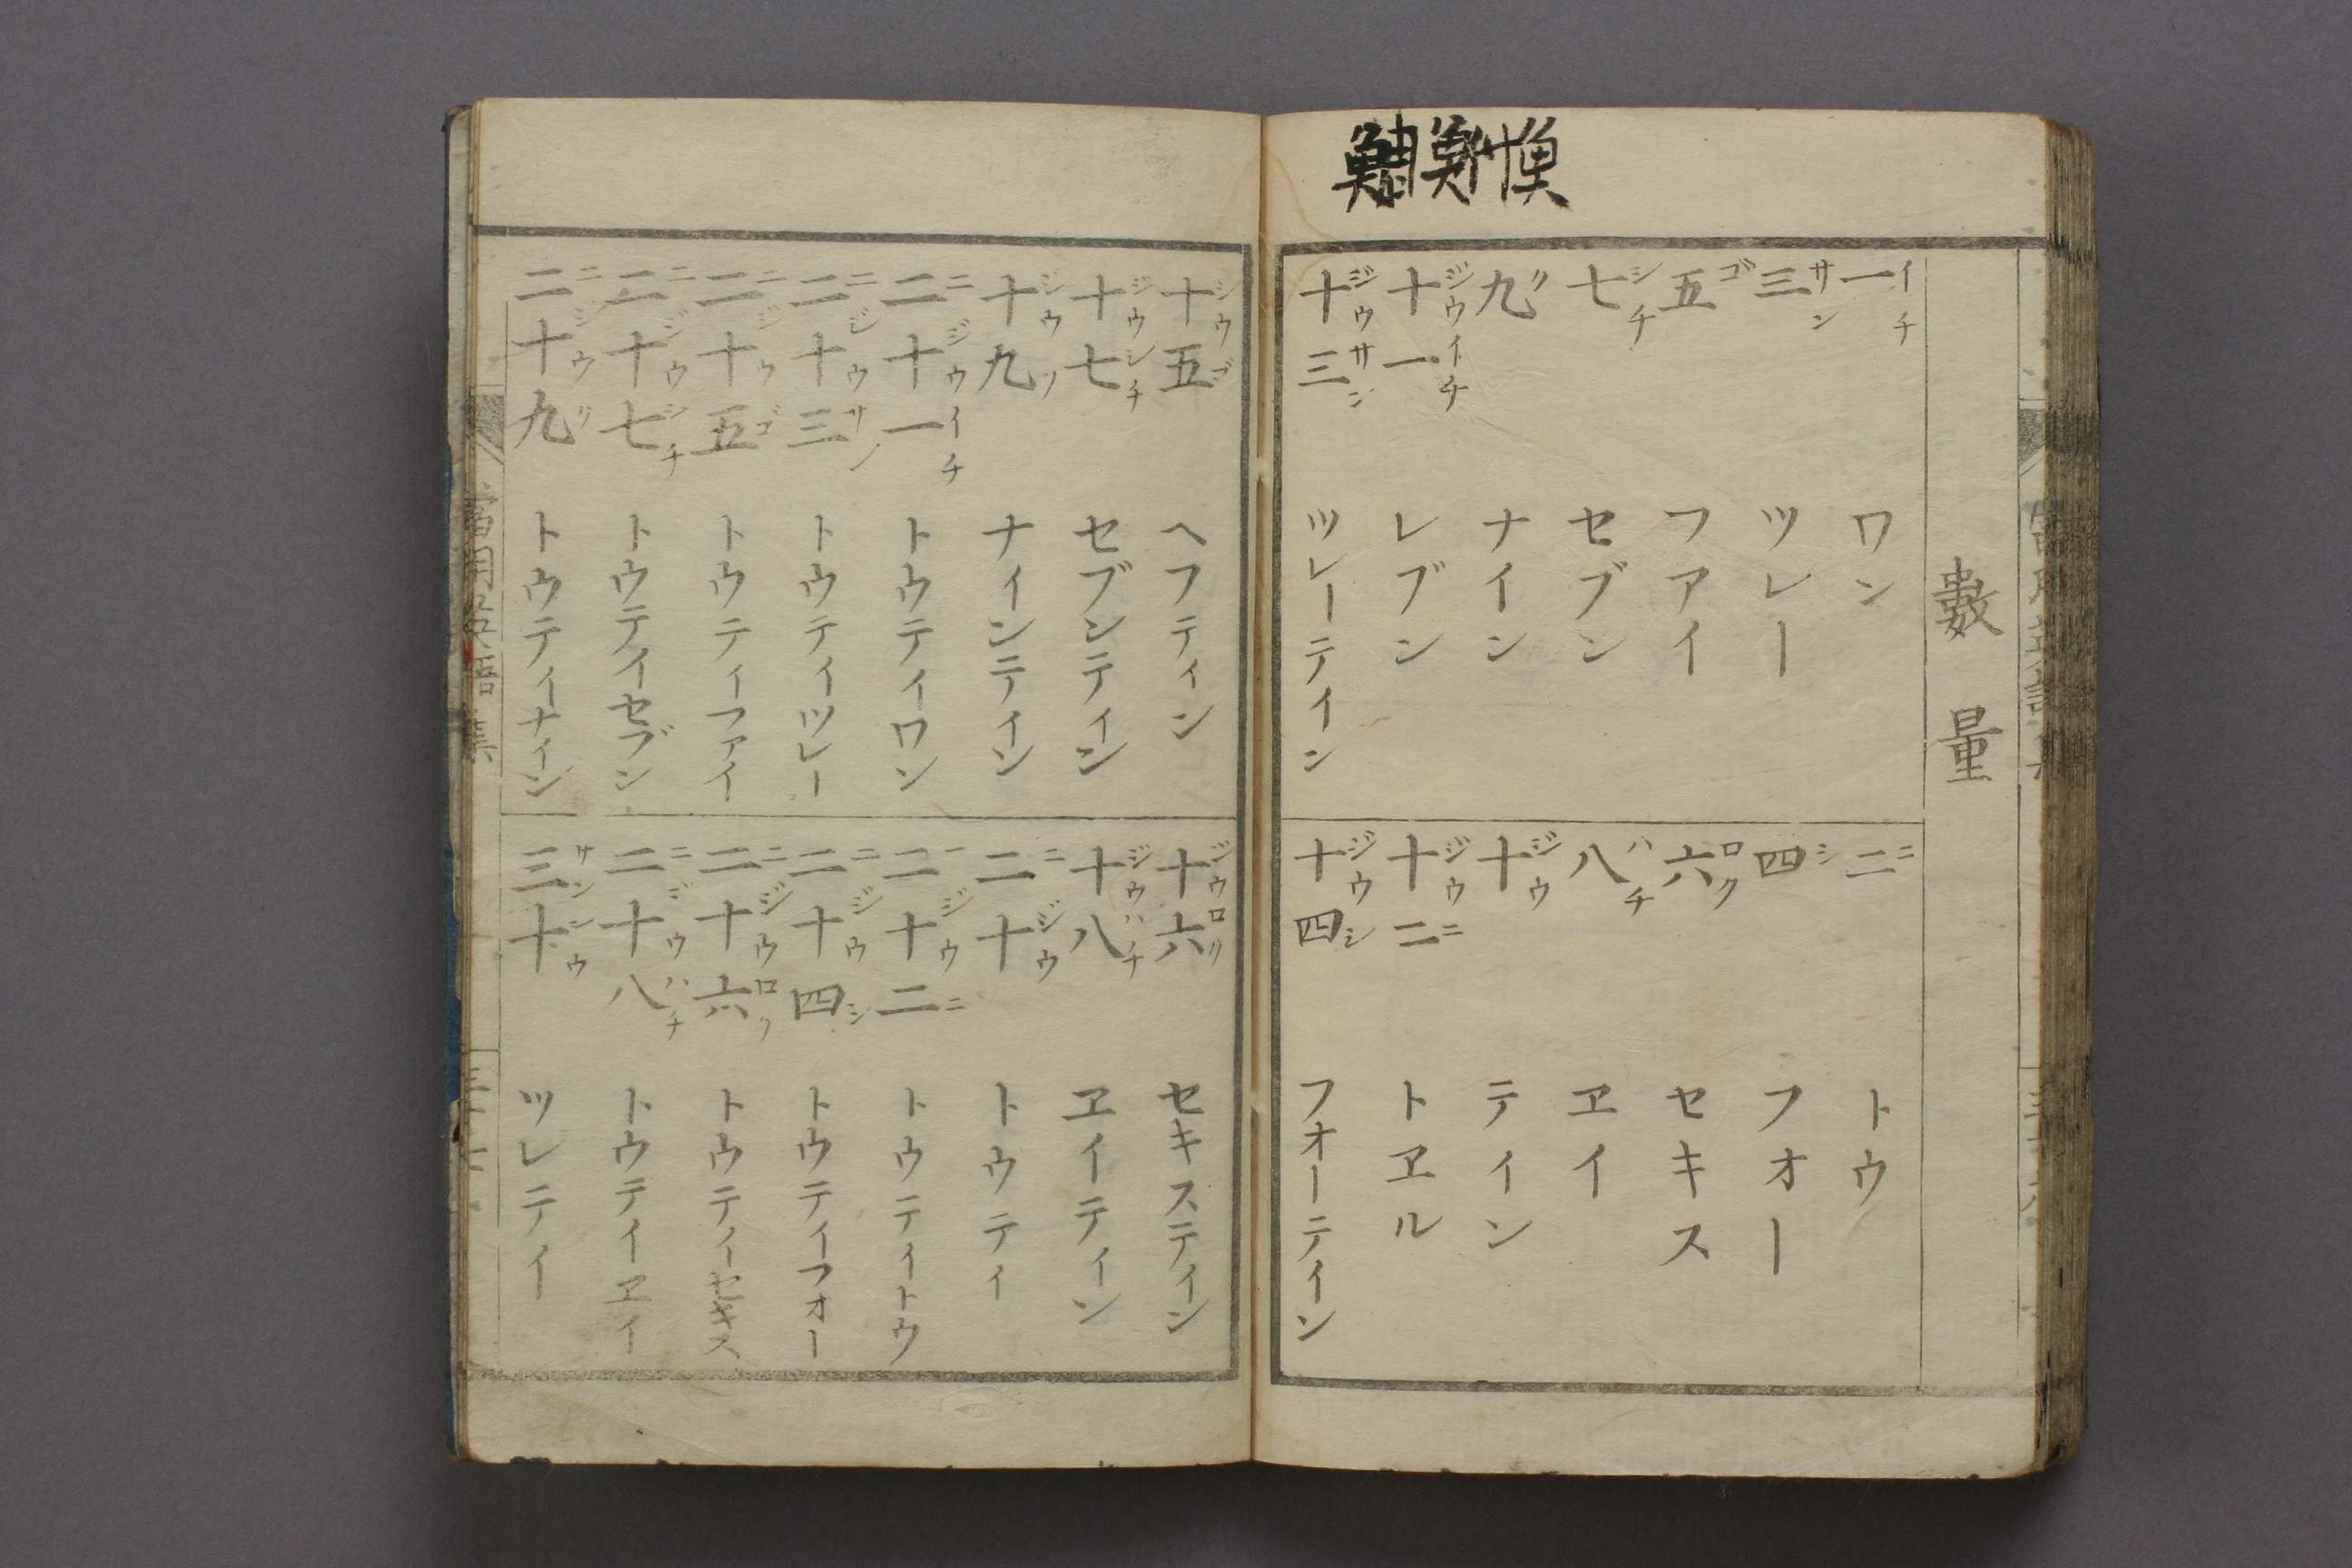 數量
一 イチ ワン
三 サン ツレー
五 ゴ フアイ
七 シチ セブン
九 ク ナイン
十一 ジウイチ レブン
十三 ジウサン ツレーテイン
二 ニ トウ
四 シ フオー
六 ロク セキス
八 ハチ ヱイ
十 ジウ テイン
十二 ジウニ トヱル
十四 ジウシ フオーテイン
十五 ジウゴ ヘフティン
十七 ジウシチ セブンテイン
十九 ジウク ナインテイン
二十一 ニジウイチ トウテイーワン
二十三 ニジウサン トウテイーツレー
二十五 ニジウゴ トウテイーファイ
二十七 ニジウシチ トウテイセブン
二十九 ニジウク トウテイーナイン
十六 ジウロク セキステイン
十八 ジウハチ ヱイティーン
二十 ニジウ トウテイ
二十二 ニジウニ トウテイートウ
二十四 ニジウシ トウテイーフオー
二十六 ニジウロク トウテイーセキス
二十八 ニジウハチ トウテイーヱイ
三十 サンジウ ツレテイー